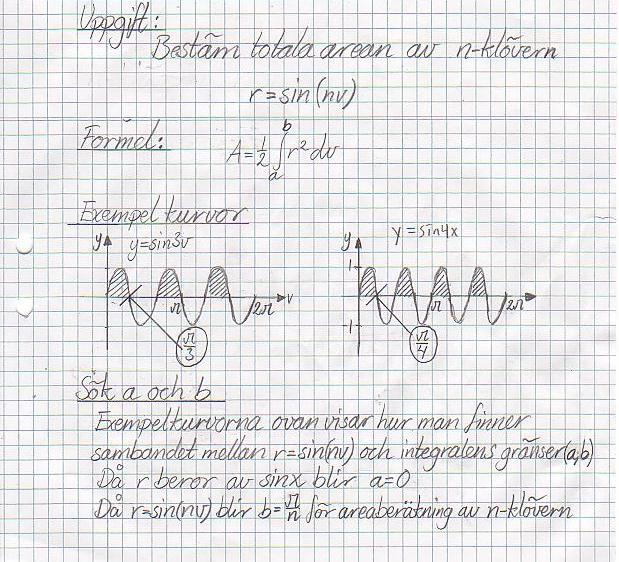 Uppgift:
Bestäm totala arean av n-klövern
r = sin(nv)
Formel:
A = 1/2 ∫_a^b r² dv
Exempelkurvor
y y=sin3v
π 2π v
π/3
y y=sin4x
1
π 2π
-1
π/4
Sök a och b
Exempelkurvorna ovan visar hur man finner
sambandet mellan r=sin(nv) och integralens gränser(a,b)
Då r beror av sinx blir a=0
Då r=sin(nv) blir b=π/n för areaberätning av n-klövern